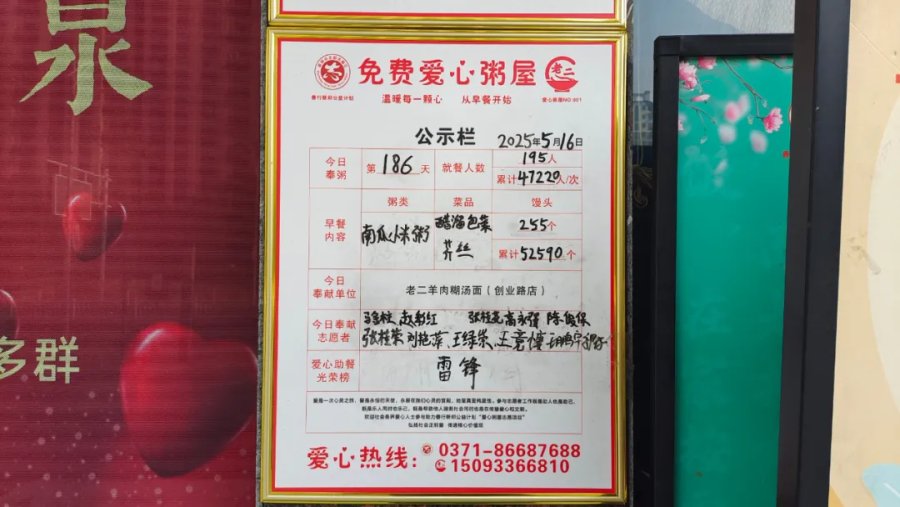 泉
多群
免费爱心粥屋
老二
善行新郑公益计划
温暖每一颗心 从早餐开始
爱心粥屋NO:001
公示栏 2025年5月16日
今日奉粥 第186天 就餐人数 195人
累计47220人/次
早餐内容 粥类 菜品 馒头
南瓜小米粥 醋溜包菜 255个
芥丝 累计52590个
今日奉献单位 老二羊肉糊汤面（创业路店）
今日奉献志愿者 张桂花 高永强 陈俊保
张桂荣 刘艳萍、王绿荣、
爱心助餐光荣榜 雷锋
弘扬社会正能量 传递核心价值观
爱心热线： 0371-86687688
15093366810